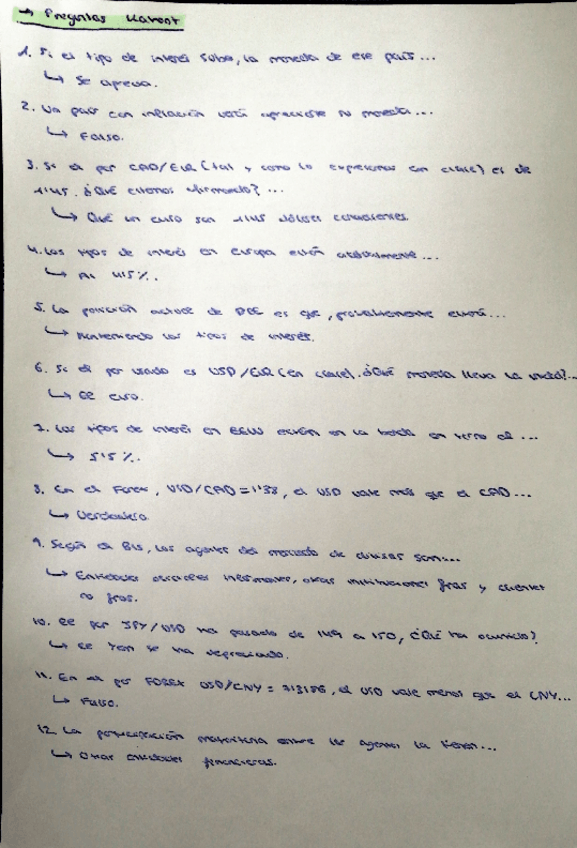 → Preguntas Kahoot
1. Si el tipo de interés sube, la moneda de ese país...
↳ Se aprecia.
2. Un país con inflación verá apreciarse su moneda...
↳ Falso.
3. Si el par CAD/EUR (tal y como lo expresamos en clase) es de
1'1145. ¿Qué estamos afirmando? ...
↳ Qué un euro son dólares canadienses.
4. Los tipos de interés en Europa están actualmente...
↳ Al 4'5%.
5. La posición actual de BCE es que, probablemente estará...
↳ Manteniendo los tipos de interés.
6. Si el par usado es USD/EUR (en clase). ¿Qué moneda lleva la unidad?...
↳ El euro.
7. Los tipos de interés en EEUU están en la banda en torno al ...
↳ 5'5%.
8. En el Forex, USD/CAD = 1'38, el USD vale más que el CAD...
↳ Verdadero.
9. Según el BIS, los agentes del mercado de divisas son...
↳ Entidades informantes, otras instituciones fras y clientes
no fras.
10. El par JPY/USD ha pasado de 149 a 150, ¿Qué ha ocurrido?
↳ El Yen se ha depreciado.
11. En el par FOREX USD/CNY = , el USD vale menos que el CNY...
↳ Falso.
12. La participación mayoritaria entre los agentes la tienen...
↳ Otras entidades financieras.